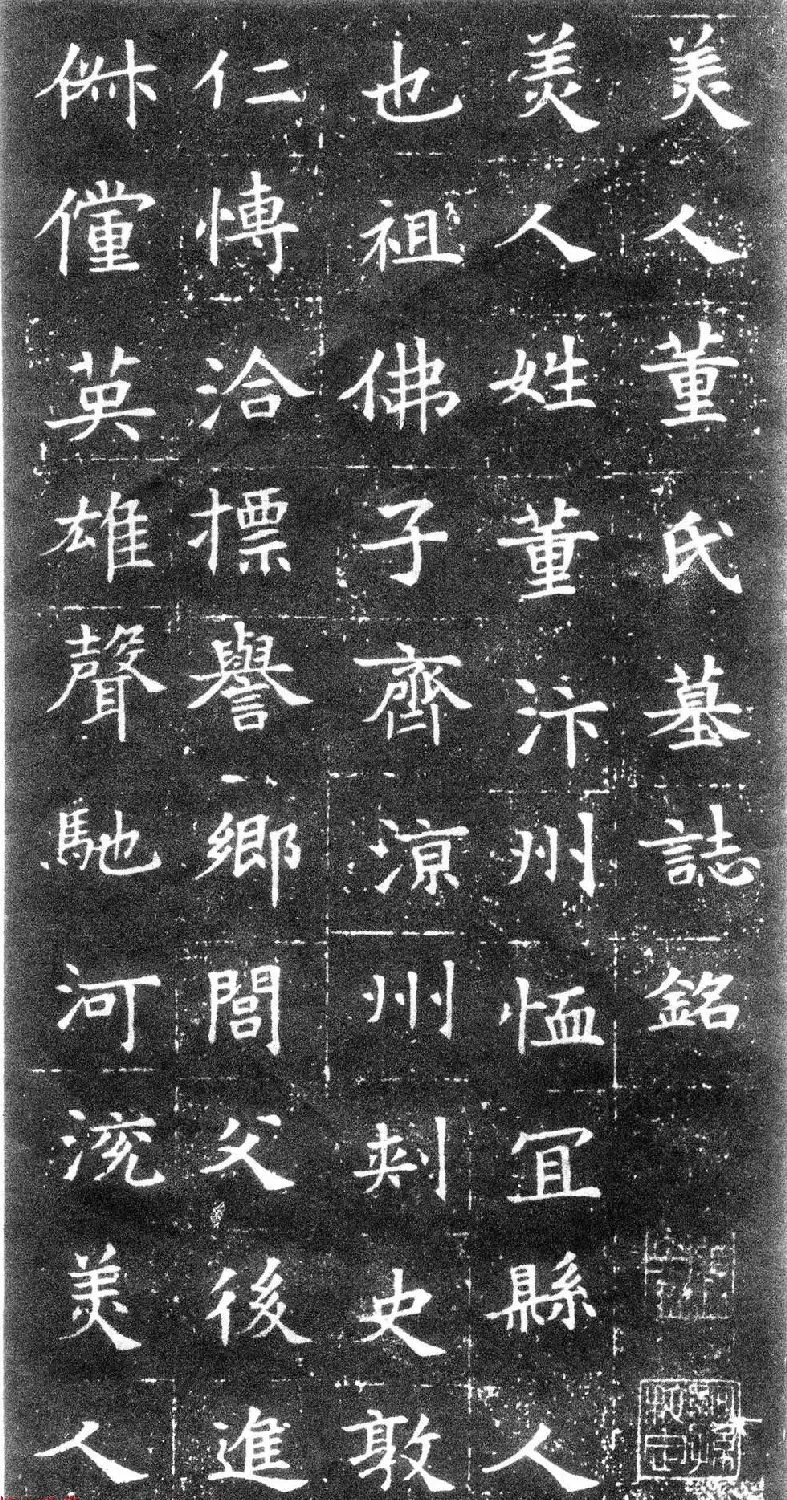 美人董氏墓誌銘
美人姓董汴州恤冝縣人
也祖佛子齊涼州刺史敦
仁愽洽摽譽鄉閭父後進
俶儻英雄聲馳河渷美人